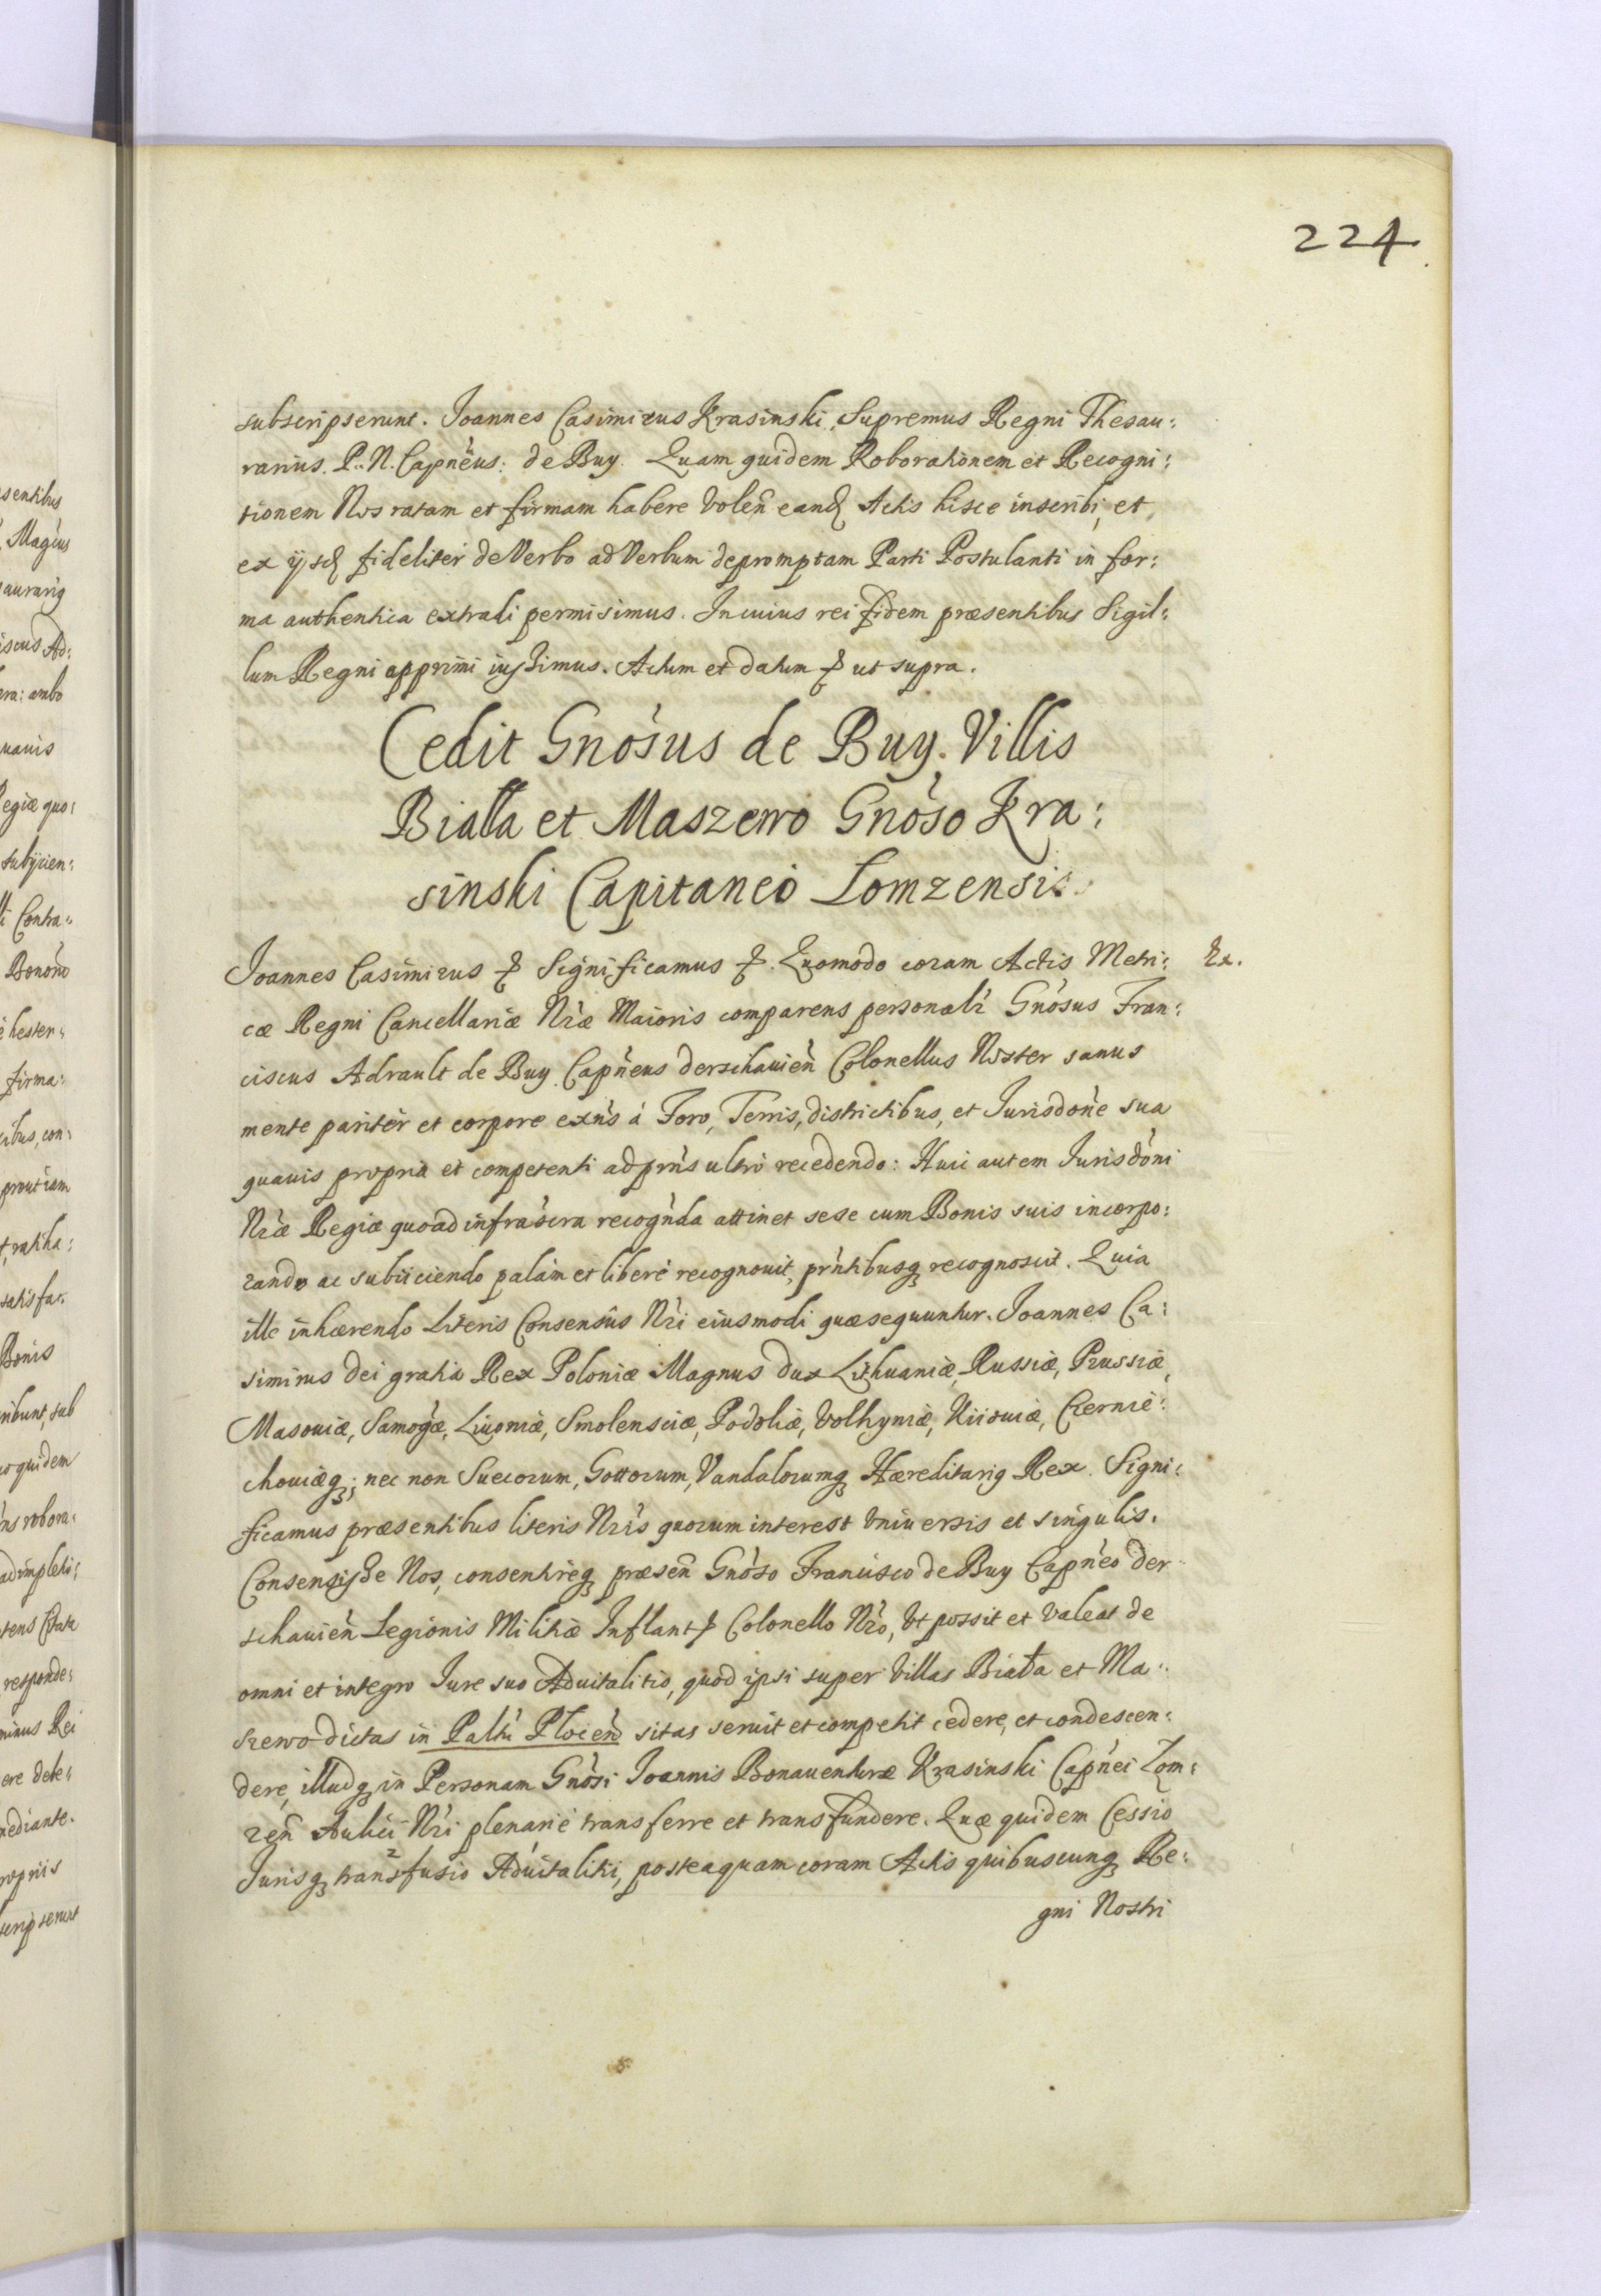 224
subscripserunt. Joannes Casimirus Krasinski, Supremus Regni Thesau:
rarius. P.. N. Capnēus: de Buy. Quam quidem Roborationem et Recogni:
tionem Nos ratam et firmam habere volen̄ eandꝫ Actis hisce inscribi, et
ex ijsdꝫ fideliter de Verbo ad Verbum depromptam Parti Postulanti in for:
ma authentica extradi permisimus. In cuius rei fidem præsentibus Sigil:
lum Regni apprimi iussimus. Actum et datum & ut supra.
Cedit Gnòsus de Buy. Villis
Biała et Maszewo Gnòso Kra:
sinski Capitaneo Lomzensi.
Joannes Casimirus & Significamus &. Quomodo coram Actis Metri:
Ex.
cæ Regni Cancellariæ Nr̀æ Maioris comparens personalr̀ Gnòsus Fran:
ciscus Adrault de Buy Capn̄eus derschauien̄ Colonellus Noster sanus
mente pariter et corpore exǹs à Foro, Terris, districtibus, et Jurisdòne sua
quauis propria et competenti ad prǹs ultrò recedendo: Huic autem Jurisdòni
Nr̀æ Regiæ quoad infrascra recogǹda attinet sese cum Bonis suis incorpo:
rando ac subiiciendo palàm et liberè recognouit, prǹtibusqꝫ recognoscit. Quia
ille inhærendo Literis Consensûs Nr̀i eiusmodi quæ sequuntur. Joannes Ca:
simirus Dei gratia Rex Poloniæ Magnus dux Lithuaniæ, Russiæ, Prussiæ,
Masouiæ, Samogæ, Liuoniæ, Smolensciæ, Podoliæ, Volhyniæ, Kiiouiæ, Czernie:
chouiæqꝫ; nec non Suecorum, Gottorum, Vandalorumqꝫ Hæreditariꝯ Rex. Signi:
ficamus præsentibus literis Nr̀is quorum interest Vniuersis et singulis.
Consensisse Nos, consentireqꝫ præsen̄ Gnòso Francisco de Buy Capǹeo der
schauien̄ Legionis Militiæ Inflant & Colonello Nr̀o, Vt possit et valeat de
omni et integro Jure suo Aduitalitio, quod ipsi super Villas Biała et Ma:
szewo dictas in Paltu Plocen̄ sitas seruit et competit cedere, et condescen:
dere, illudqꝫ in Personam Gnòsi Joannis Bonauenturæ Krasinski Capǹei Lom:
zen̄ Aulici Nr̀i plenariè transferre et transfundere. Quæ quidem Cessio
Jurisqꝫ transfusio Aduitalitij, posteaquam coram Actis quibuscunqꝫ Re:
gni Nostri